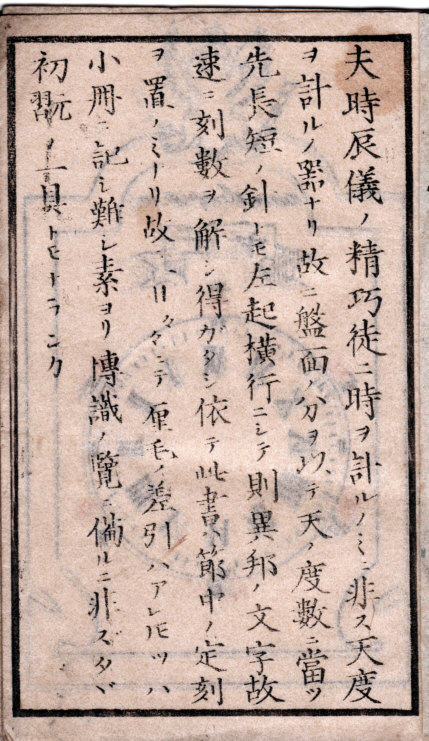 夫時辰儀ノ精巧徒ニ時ヲ計ルノミニ非ス天度
ヲ計ルノ器ナリ故ニ盤面ノ分ヲ以テ天ノ度數ニ當ツ
先長短ノ針トモ左起横行ニシテ則異邦ノ文字故
速ニ刻數ヲ解シ得ガタシ依テ此書ハ節中ノ定刻
ヲ置ノミナリ故ニ日々ニテ厘毛ノ差引ハアレ𪜈ツハ
小冊ニ記シ難シ素ヨリ博識ノ覽ニ備ルニ非ズタヾ
初